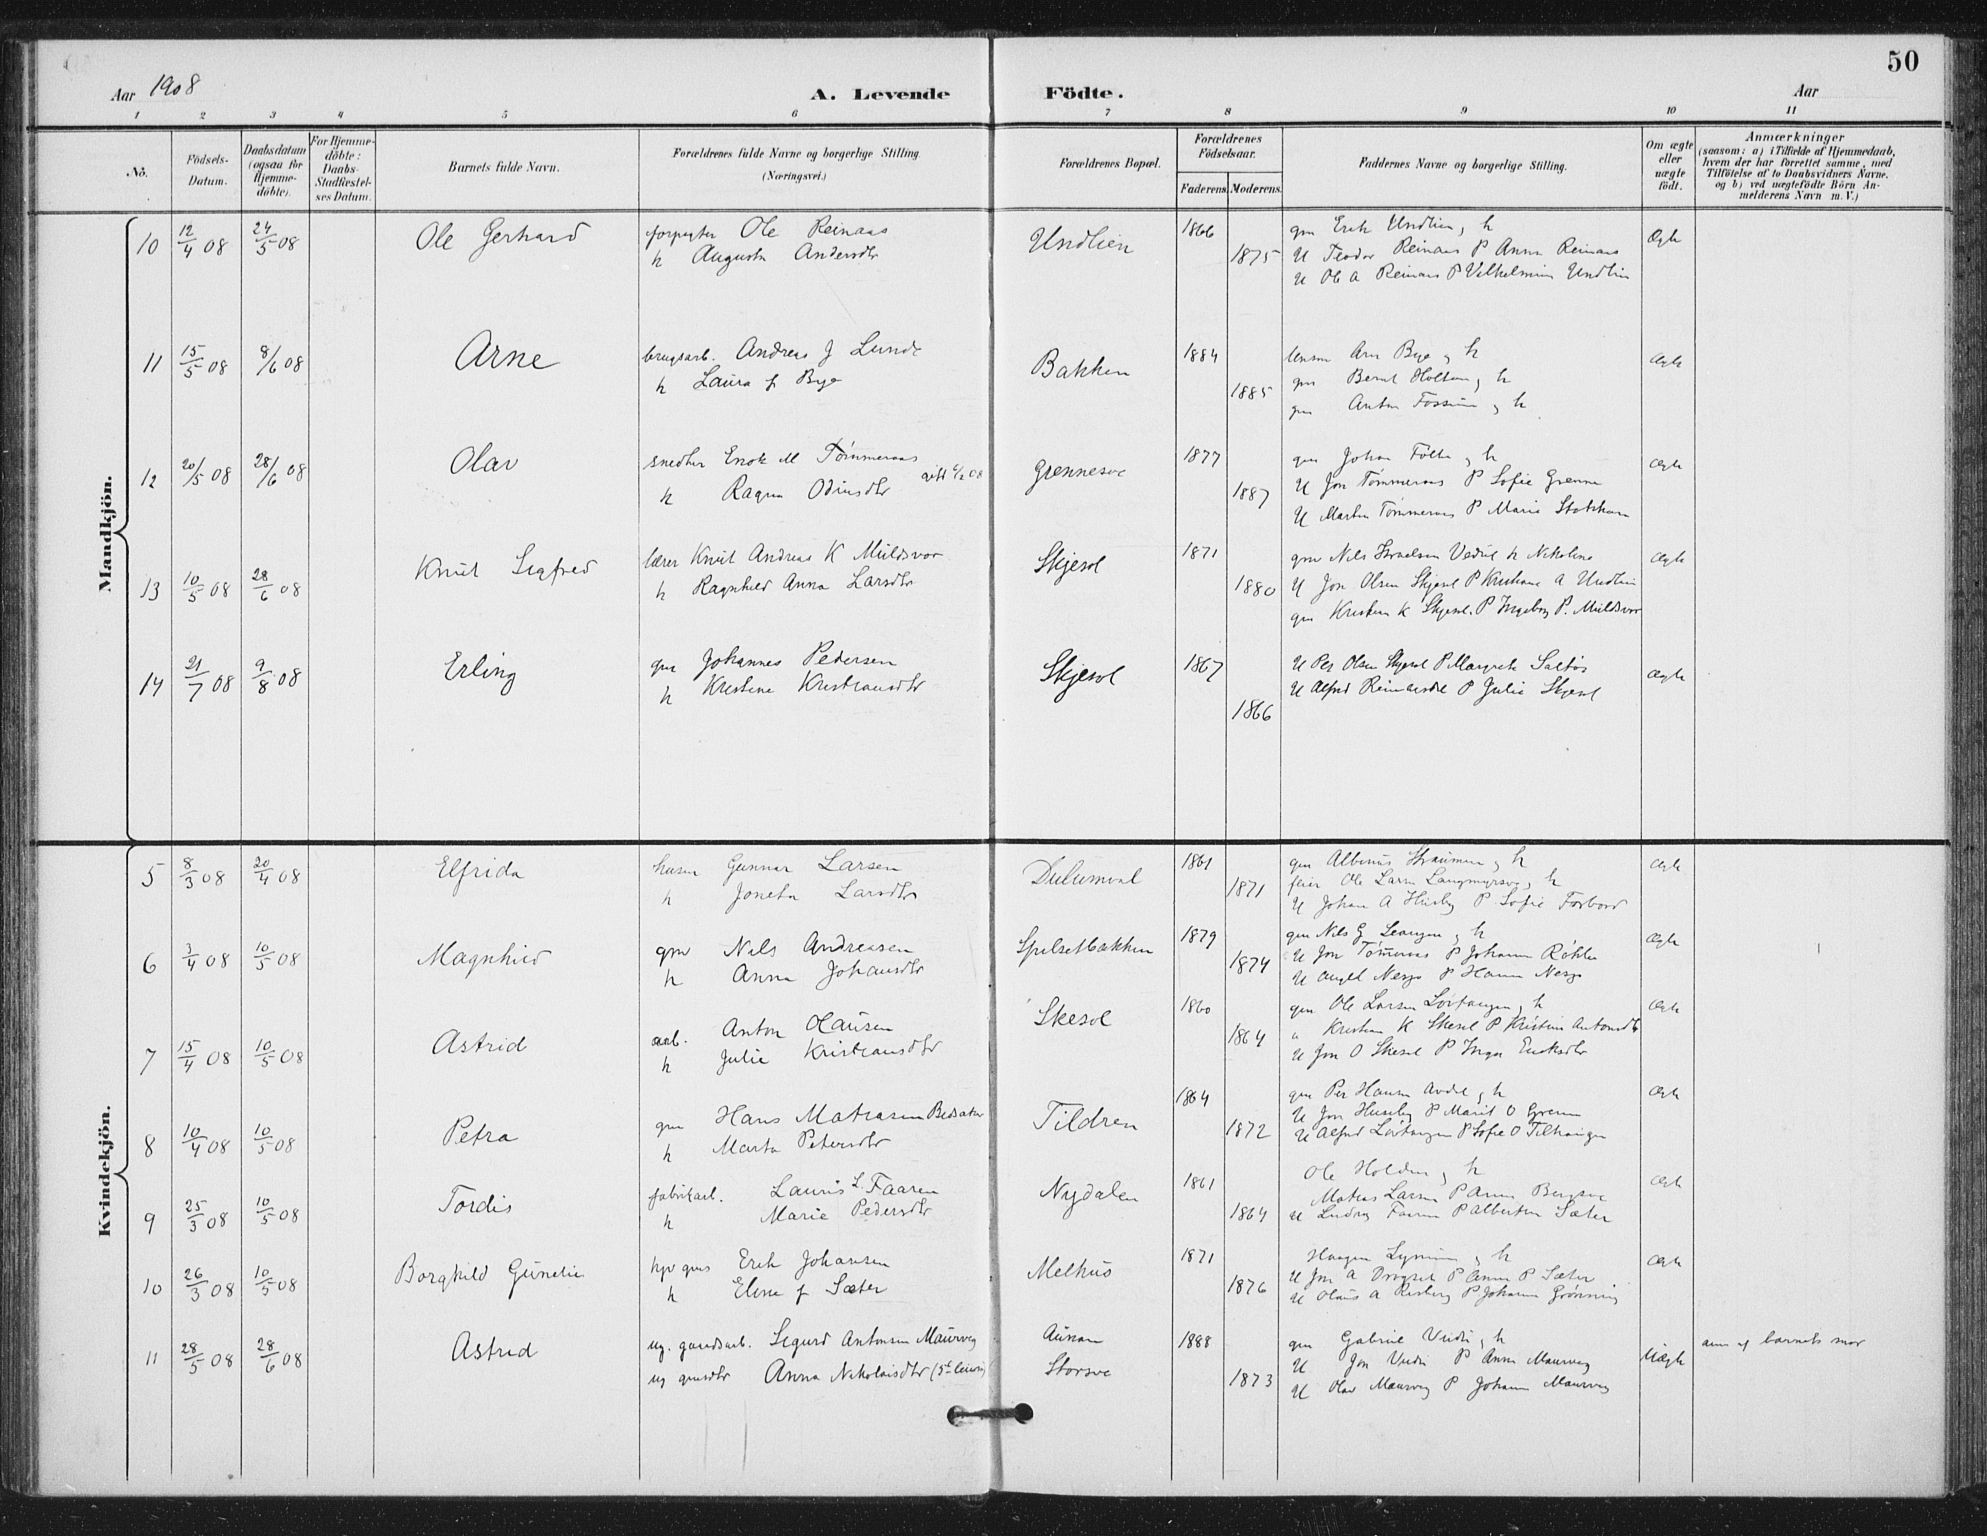 50
Aar 1908
A. Levende Födte.
Aar
1 2 3 4 5 6 7 8 9 10 11
No.
Födsels-Datum.
Daabsdatum (ogsaa for Hjemme-döbte).
For Hjemme-döbte: Daabs-Stadfæstel-ses Datum.
Barnets fulde Navn.
Forældrenes fulde Navne og borgerlige Stilling. (Næringsvei.)
Forældrenes Bopæl.
Forældrenes Födselsaar.
Faderens. Moderens.
Faddernes Navne og borgerlige Stilling.
Om ægte eller uægte födt.
Anmærkninger
(saasom: a) i Tilfælde af Hjemmedaab,
hvem der har forrettet samme, med
Tilföielse af to Daabsvidners Navne.
og b) ved uægtefödte Börn An-
melderens Navn m. V.)
Mandkjön.
10 12/4 08 24/5 08 Ole Gerhard forpagter Ole Reinaas Undlien 1866 gm Erik Undlien, h Ægte
h Augusta Andersdtr 1875 U Teodor Reinaas P Anna Reinaas
U Ole A Reinaas P Vilhelmine Undlien
11 15/5 08 8/6 08 Arne brugsarb. Andreas J Lunde Bakken 1884 Arn Bye og h Ægte
h Laura f Bye 1885 gm Bernt Holtan og h
gm Anton Fossum og h
12 20/5 08 28/6 08 Olav snedker Enok M Tømmeraas Grønnesve 1877 gm Johan og h Ægte
h Ragna Odinsdtr gift 08 1887 U Jon Tømmeraas P Sofie Grenne
U Martin Tømmeraas P Marie
13 10/5 08 28/6 08 Knut Sigfred lærer Knut Andreas K Muldsvor Skjesol 1871 gm Nils Vedul h Nikoline Ægte
h Ragnhild Anna Larsdtr 1880 U Jon Olsen Skjesol P Kristiane A Undlien
gm Kristen K Skjesol P Ingeborg P. Muldsvor
14 21/7 08 9/8 08 Erling gm Johannes Pedersen Skjesol 1867 U Per Olsen Skjesol P Margrete Saltøs Ægte
h Kristine Kristiansdtr 1866 U Alfred P Julie Skjesol
Kvindekjön.
5 8/3 08 20/4 08 Elfrida husm Gunnar Larsen Dulumval 1861 gm Albinus Straumen og h Ægte
h Joneta Larsdtr 1871 feier Ole Larsen Langmyrsve, h
U Johan A Husby P Sofie Forbord
6 3/4 08 10/5 08 Magnhild gm Nils Andreasen Spilsetbakken 1879 gm Nils G Leangen og h Ægte
h Anna Johansdtr 1874 U Jon Tømmeraas P Johanna
U P Hanna
7 15/4 08 10/5 08 Astrid arb. Anton Hansen Skesol 1860 gm Ole Larsen Lovtangen, h Ægte
h Julie Kristiansdtr 1864 " Kristian K Skesol P Kristine Antonsdtr
U Jon O Skesol P Inga Enoksdtr
8 10/4 08 10/5 08 Petra gm Hans Matiasen Tildren 1864 gm Per Hansen og h Ægte
h Marta Petersdtr 1872 U Jon Huseby P Marit O Grenne
U Alfred Lovtangen P Sofie O
9 25/3 08 10/5 08 Tordis fabrikarb. Lauris L. Faaren Nydalen 1861 Ole Holden og h Ægte
h Marie Pedersdtr 1864 Matias Larsen P Anna
U Ludvig Faaren P Albertine Sæter
10 26/3 08 10/5 08 Borghild Gunelie gm Erik Johansen Melhus 1871 Haagen og h Ægte
h Eline f Sæter 1876 U Jon A P Anna P Sæter
U Olaus A Risberg P Johanna Grønning
11 28/5 08 28/6 08 Astrid ug. gaardsarb. Sigurd Antonsen Maurveg Aunan 1888 gm Gabriel og h Uægte anm af barnets mor
ug gmsdtr Anna Nikolaisdtr Storsve 1873 U Jon P Anna Maurveg
U Olav Maurveg P Johanna Maurveg